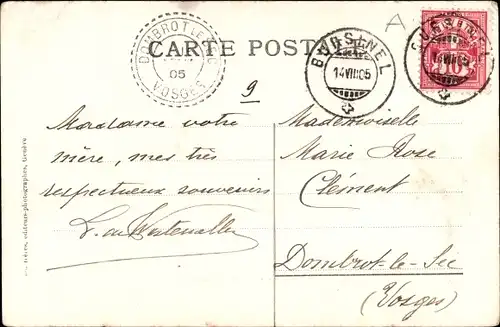 CARTE POSTALE
DOMBROT LE SEC
05
VOSGES
BURSINEL
14 VIII 05
BURSINEL
14 VIII 05
10
9
Madame votre
mère, mes très
respectueux souvenirs
Mademoiselle
Marie Rose
Clément
Dombrot-le-Sec
(Vosges)
éditeurs-photographes, Genève